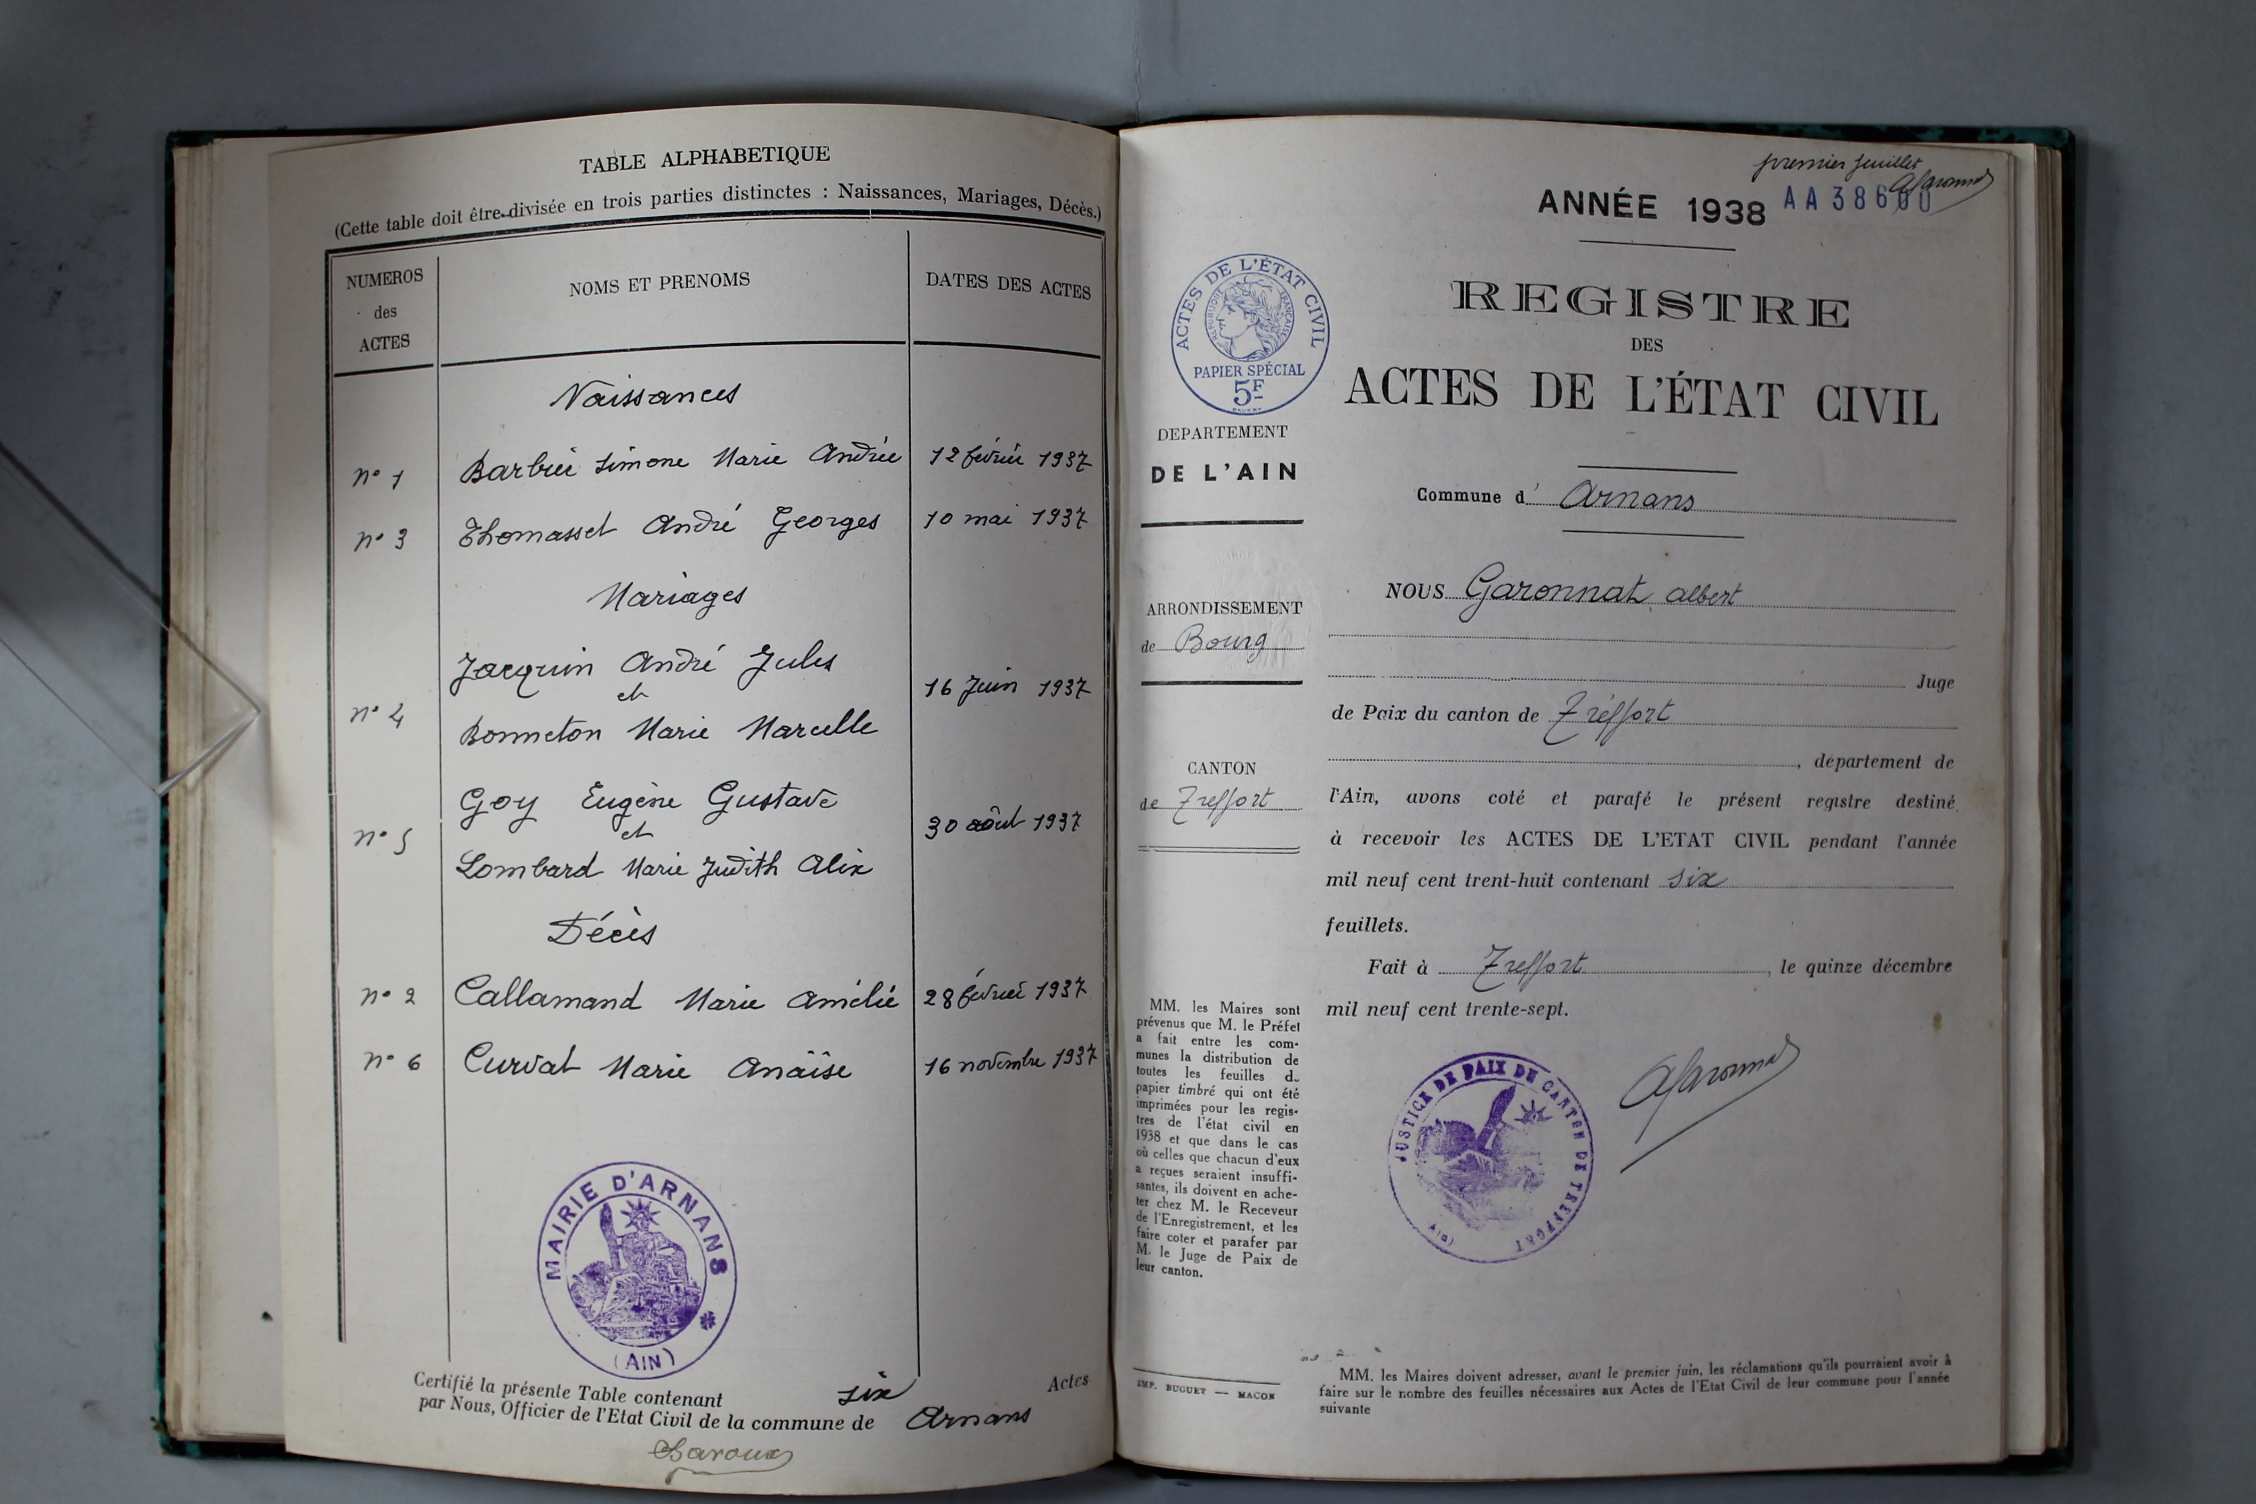 TABLE ALPHABETIQUE
(Cette table doit être divisée en trois parties distinctes : Naissances, Mariages, Décès.)
NUMEROS des ACTES
NOMS ET PRENOMS
DATES DES ACTES
Naissances
n° 1 Barbier Simone Marie Andrée 12 février 1937
n° 3 Thomasset André Georges 10 mai 1937
Mariages
Jacquin André Jules
et
n° 4 16 Juin 1937
Bonneton Marie Marcelle
Goy Eugène Gustave
et
n° 5 30 août 1937
Lombard Marie Judith Alix
Décès
n° 2 Callamand Marie Amélie 28 février 1937
n° 6 Curvat Marie Anaïse 16 novembre 1937
MAIRIE D'ARNANS
(AIN)
Certifié la présente Table contenant six Actes
par Nous, Officier de l'Etat Civil de la commune de Arnans
premier feuillet
AGaronnat
ANNÉE 1938
AA38600
REGISTRE
DES
ACTES DE L'ÉTAT CIVIL
ACTES DE L'ÉTAT CIVIL
RÉPUBLIQUE FRANÇAISE
PAPIER SPÉCIAL
5F
DEPARTEMENT
DE L'AIN
ARRONDISSEMENT
de Bourg
CANTON
de Treffort
MM. les Maires sont
prévenus que M. le Préfet
a fait entre les com-
munes la distribution de
toutes les feuilles de
papier timbré qui ont été
imprimées pour les regis-
tres de l'état civil en
1938 et que dans le cas
où celles que chacun d'eux
a reçues seraient insuffi-
santes, ils doivent en ache-
ter chez M. le Receveur
de l'Enregistrement, et les
faire coter et parafer par
M. le Juge de Paix de
leur canton.
IMP. BUGUET — MACON
Commune d' Arnans
NOUS Garonnat Albert
Juge
de Paix du canton de Tréffort
, département de
l'Ain, avons coté et parafé le présent registre destiné
à recevoir les ACTES DE L'ETAT CIVIL pendant l'année
mil neuf cent trent-huit contenant six
feuillets.
Fait à Treffort, le quinze décembre
mil neuf cent trente-sept.
JUSTICE DE PAIX DU CANTON DE TREFFORT
(AIN)
AGaronnat
MM. les Maires doivent adresser, avant le premier juin, les réclamations qu'ils pourraient avoir à
faire sur le nombre des feuilles nécessaires aux Actes de l'Etat Civil de leur commune pour l'année
suivante